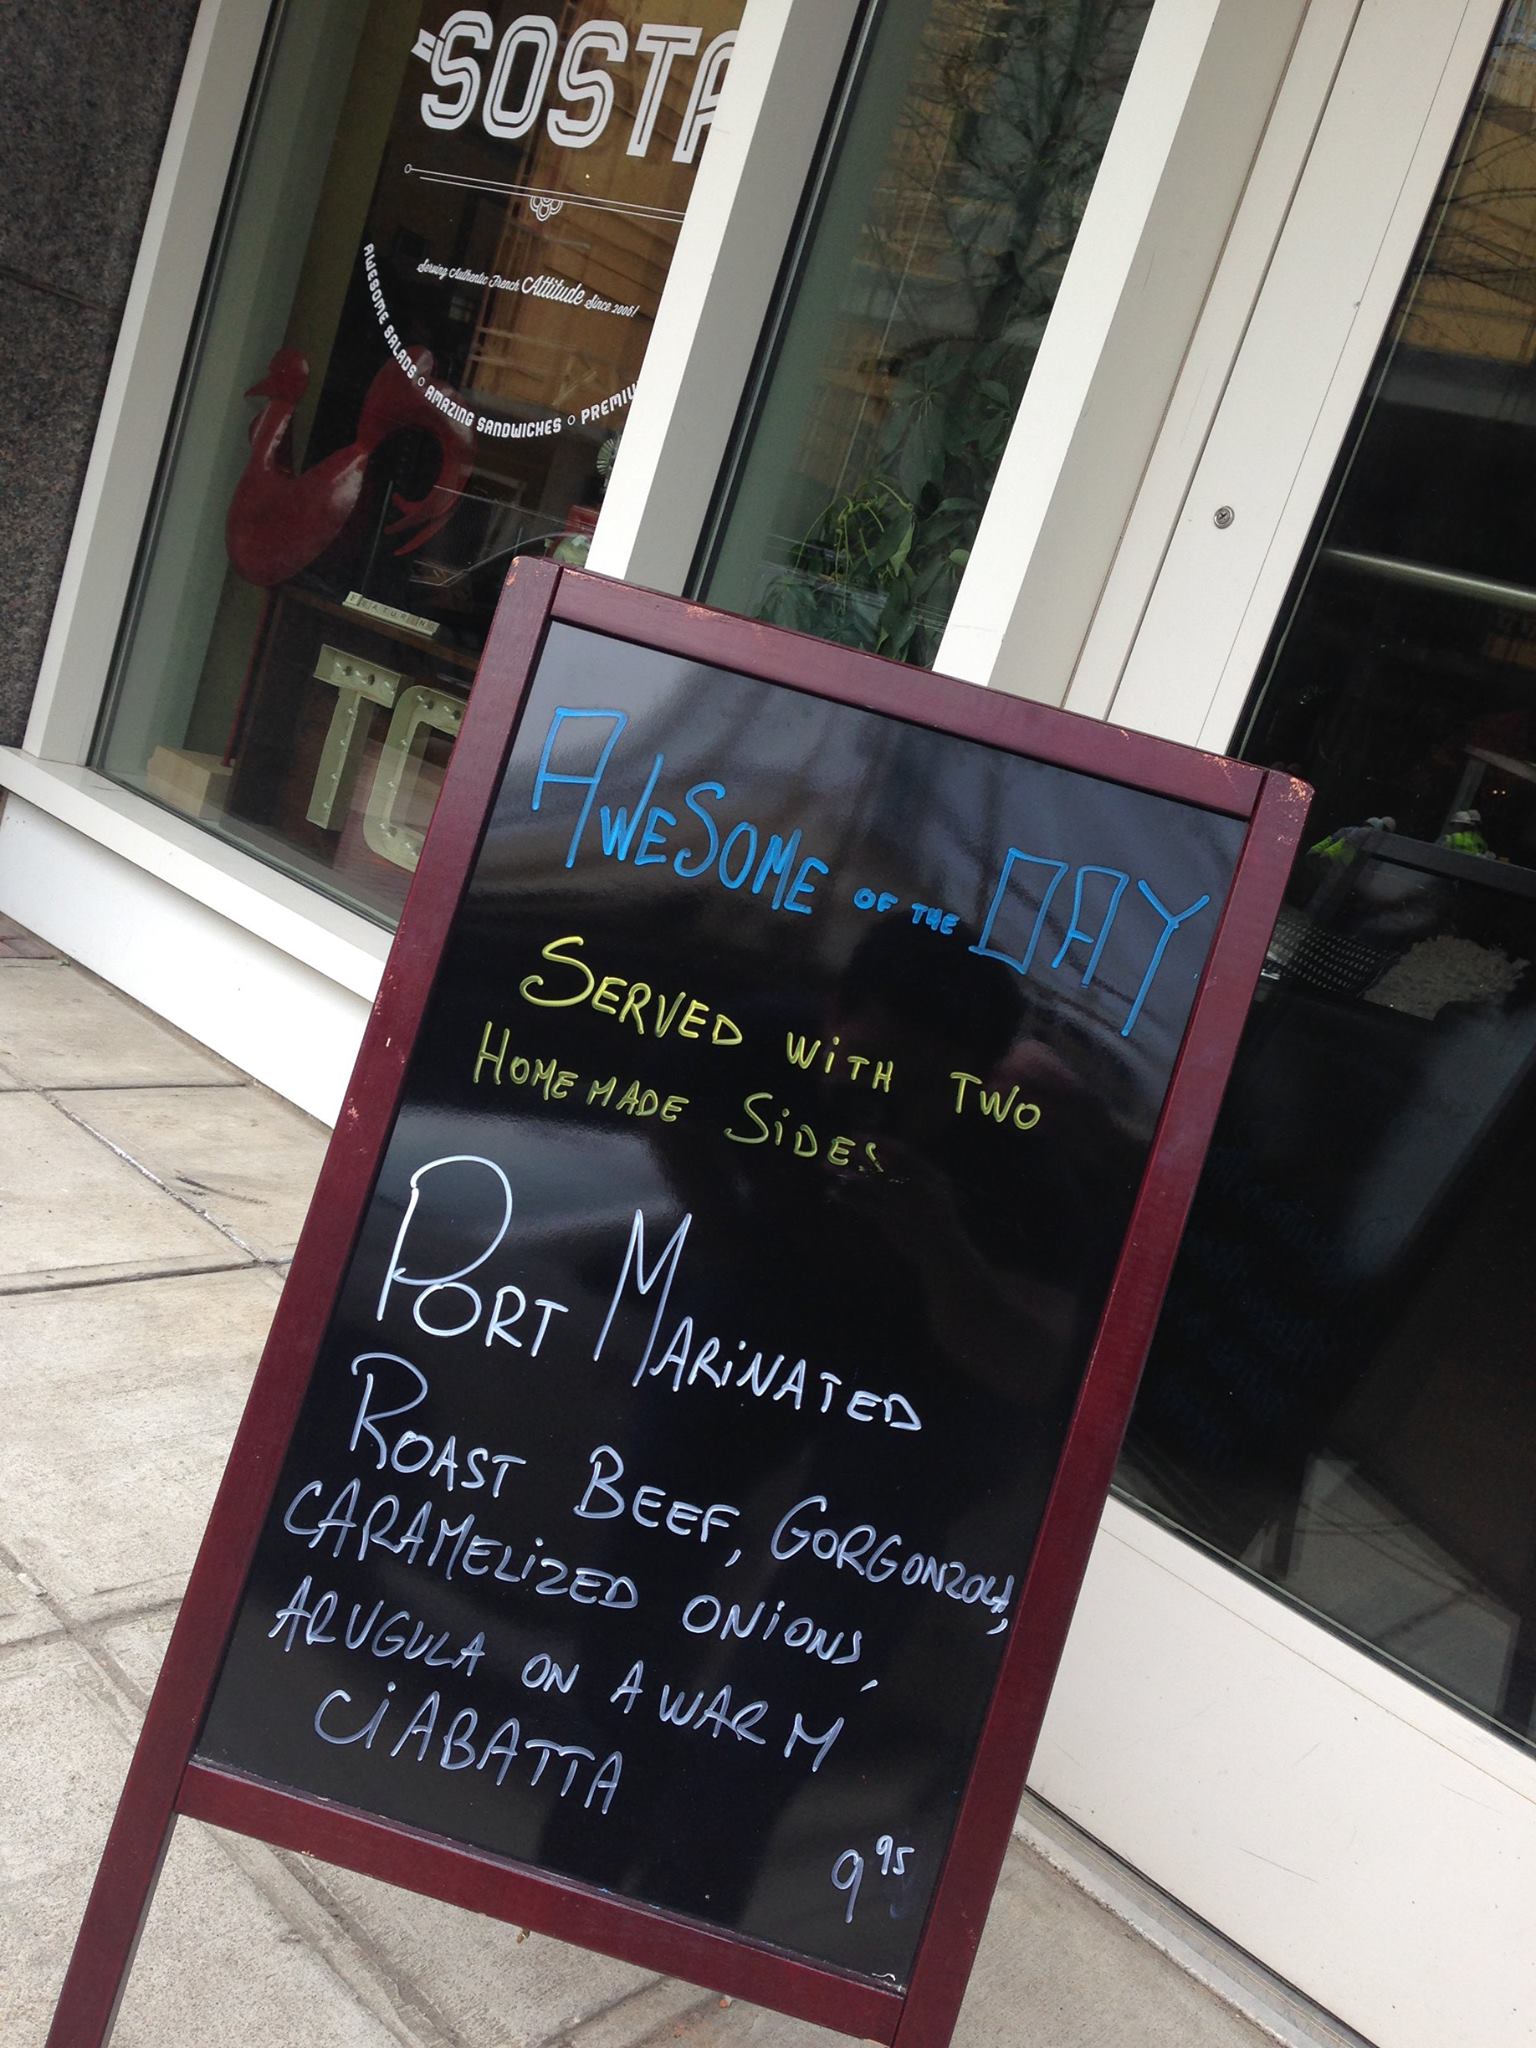 SOSTA
Serving Authentic French Attitude Since 2006!
AWESOME SALADS o AMAZING SANDWICHES o PREMIU
FEATURING
TO
AWESOME OF THE DAY
SERVED WITH TWO
HOMEMADE SIDES
PORT MARINATED
ROAST BEEF, GORGONZOLA,
CARAMELIZED ONIONS,
ARUGULA ON A WARM
CIABATTA
9 95